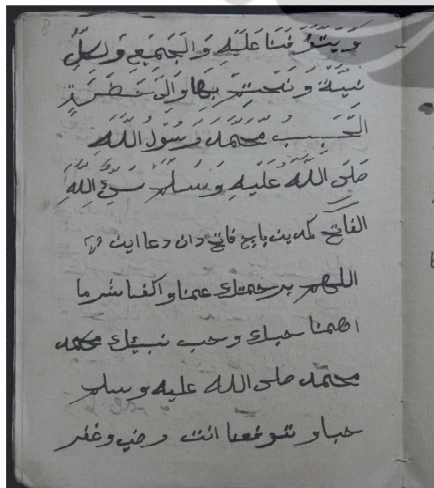 8
عليه والجميع ولكل
نية ونختم بها والى حضرة
الحبيب محمد رسول الله
صلى الله عليه وسلم
الفاتح كمدين باچ فاتح دان دعا اين
اللهم برحمتك عمنا واكفنا شر ما
اهمنا حبك وحب نبيك محمد
محمد صلى الله عليه وسلم
حبا